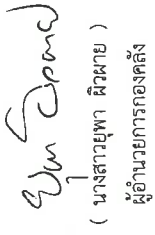 ( นางสาวยุพา ผิวผาย )
ผู้อำนวยการกองคลัง